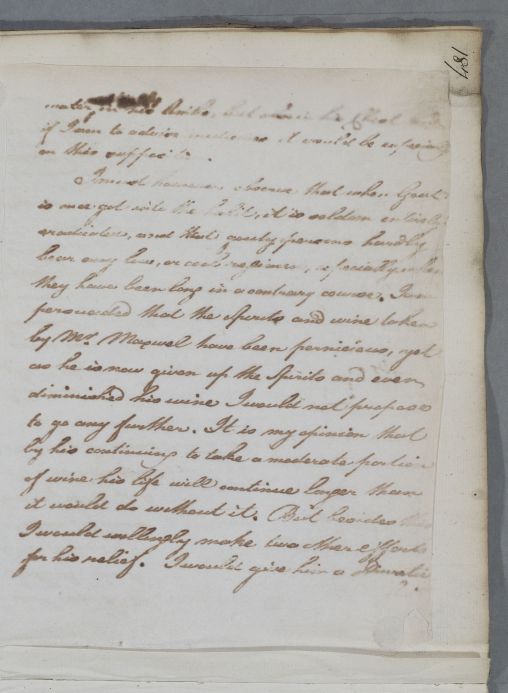 184
water in his Ancles, but when in his Chest and
if I am to advise medicines it would be especially
on this
I must however observe that when Gout
is once got into the habit, it is seldom entirely
eradicated, and that gouty persons hardly
bear any low, or cool regimen, especially when
they have been long in a contrary course. I am
persuaded that the Spirits and wine taken
by Mr. Maxwel have been pernicious, yet
as he is now given up the Spirits and even
diminished his wine I would not propose
to go any further. It is my opinion that
by his continuing to take a moderate portion
of wine his life will continue longer than
it would do without it. But besides this
I would willingly make two other Efforts
for his relief. I would give him a Diuretic